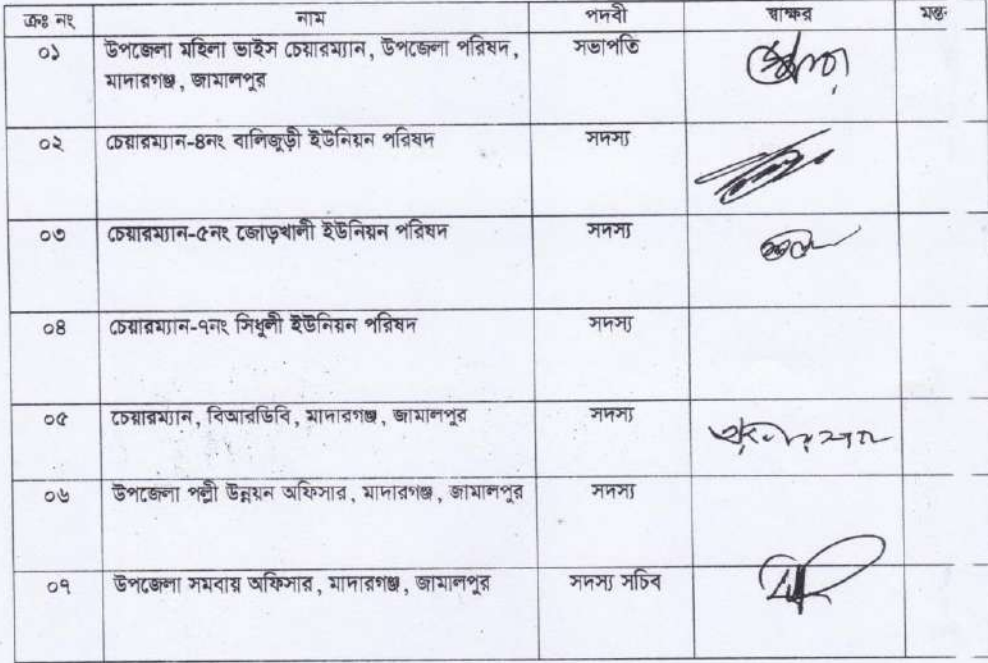 ক্রঃ নং নাম পদবী স্বাক্ষর মন্ত
০১ উপজেলা মহিলা ভাইস চেয়ারম্যান, উপজেলা পরিষদ, সভাপতি
মাদারগঞ্জ, জামালপুর
০২ চেয়ারম্যান-৪নং বালিজুড়ী ইউনিয়ন পরিষদ সদস্য
০৩ চেয়ারম্যান-৫নং জোড়খালী ইউনিয়ন পরিষদ সদস্য
০৪ চেয়ারম্যান-৭নং সিধুলী ইউনিয়ন পরিষদ সদস্য
০৫ চেয়ারম্যান, বিআরডিবি, মাদারগঞ্জ, জামালপুর সদস্য
০৬ উপজেলা পল্লী উন্নয়ন অফিসার, মাদারগঞ্জ, জামালপুর সদস্য
০৭ উপজেলা সমবায় অফিসার, মাদারগঞ্জ, জামালপুর সদস্য সচিব